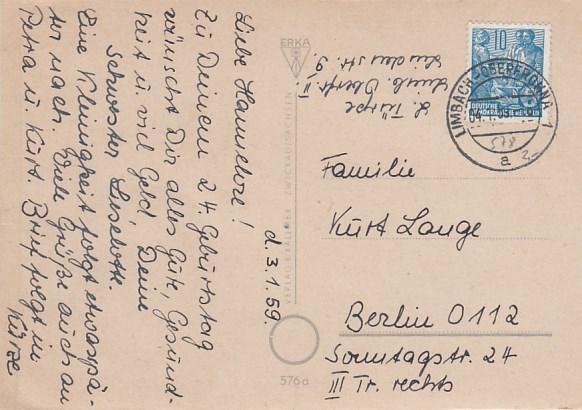 Liebe Hannelore!
Zu Deinem 24. Geburtstag
wünscht Dir alles Gute, Gesund-
heit u. viel Geld, Deine
Schwester Liselotte.
Eine Kleinigkeit folgt etwas spä-
ter nach. Viele Grüße auch an
Petra u. Kurt. Brief folgt in
Kürze
d. 3.1.59.
ERKA
VERLAG R. KALLMER ZWICKAU/SACHSEN
576a
L. Türpe
Limb. Oberfr. II
Lindenstr. 9.
10
DEUTSCHE
DEMOKRATISCHE REPUBLIK
LIMBACH-OBERFROHNA 1
a
Familie
Kurt Lange
Berlin O 112
Sonntagstr. 24
III Tr. rechts